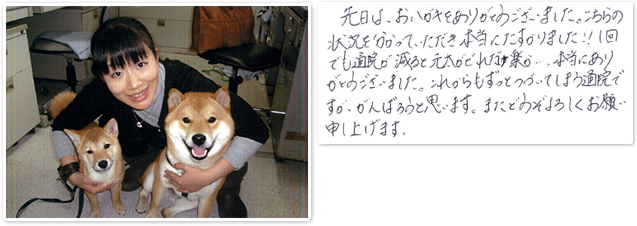 先日は、おハガキをありがとうございました。こちらの
状況を分かって、いただき本当にたすかりました!!1回
でも通院が減ると元太がどれだけ楽か…本当にあり
がとうございました。これからもずっとつづいてしまう通院で
すが、がんばろうと思います。またどうぞよろしくお願い
申し上げます。